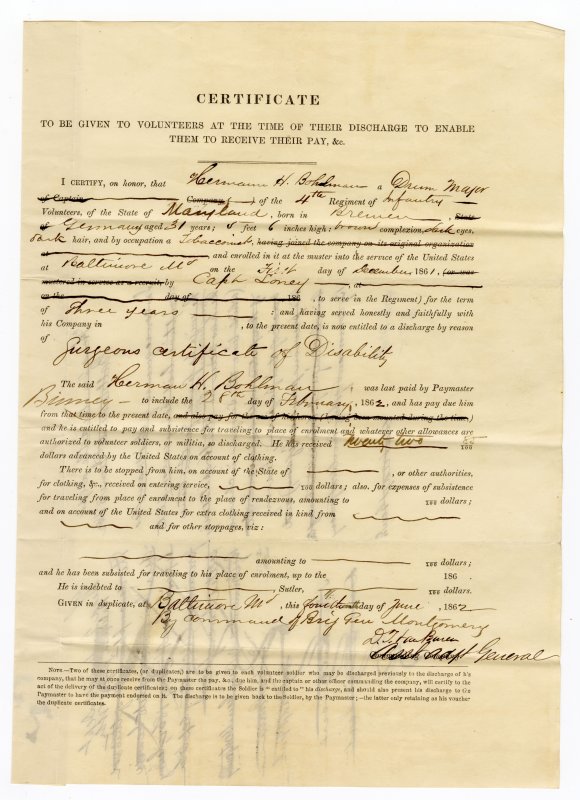 CERTIFICATE
TO BE GIVEN TO VOLUNTEERS AT THE TIME OF THEIR DISCHARGE TO ENABLE
THEM TO RECEIVE THEIR PAY, &c.
I CERTIFY, on honor, that Hermann H. Bohlman a Drum Major
of Captain Company ( ) of the 4th Regiment of Infantry
Volunteers, of the State of Maryland, born in Bremen, State
of Germany aged 31 years; feet 6 inches high: complexion, dark eyes,
dark hair, and by occupation a Tobacconist, having joined the company on its original organization
and enrolled in it at the muster into service of the United States
at Baltimore Md on the First day of December, 1861, (or was
mustered in service as a recruit, by Capt Loney at
on the day of 186 , to serve in the Regiment) for the term
of Three years : and having served honestly and faithfully with
his Company in , to the present date, is now entitled to a discharge by reason
of
Surgeons certificate of Disability
The said Herman H. Bohlman was last paid by Paymaster
to include the 28th day of February, 1862, and has pay due him
from that time to the present date,
and he is entitled to pay and subsistence for traveling to place of enrolment and whatever other allowances are
authorized to volunteer soldiers, or militia, so discharged. He has received twenty two 100
dollars advanced by the United States on account of clothing.
There is to be stopped from him, on account of the State of , or other authorities,
for clothing, &c., received on entering service, 100 dollars; also. for expenses of subsistence
for traveling from place of enrolment to the place of rendezvous, amounting to 100 dollars;
and on account of the United States for extra clothing received in kind from
and for other stoppages, viz:
amounting to 100 dollars;
and he has been subsisted for traveling to his place of enrolment, up to the 186 .
He is indebted to , Sutler, 100 dollars.
GIVEN in duplicate, at Baltimore Md, this fourteenth day of June, 1862
By command of Brig Gen Montgomery
Asst Adjt General
NOTE.—Two of these certificates, (or duplicates,) are to be given to each volunteer soldier who may be discharged previously to the discharge of his
company, that he may at once receive from the Paymaster the pay, &c., due him, and the captain or other officer commanding the company, will certify to the
act of the delivery of the duplicate certificates; on these certificates the Soldier is "entitled to" his discharge, and should also present his discharge to the
Paymaster to have the payment endorsed on it. The discharge is to be given back to the Soldier, by the Paymaster;—the latter only retaining as his voucher
the duplicate certificates.